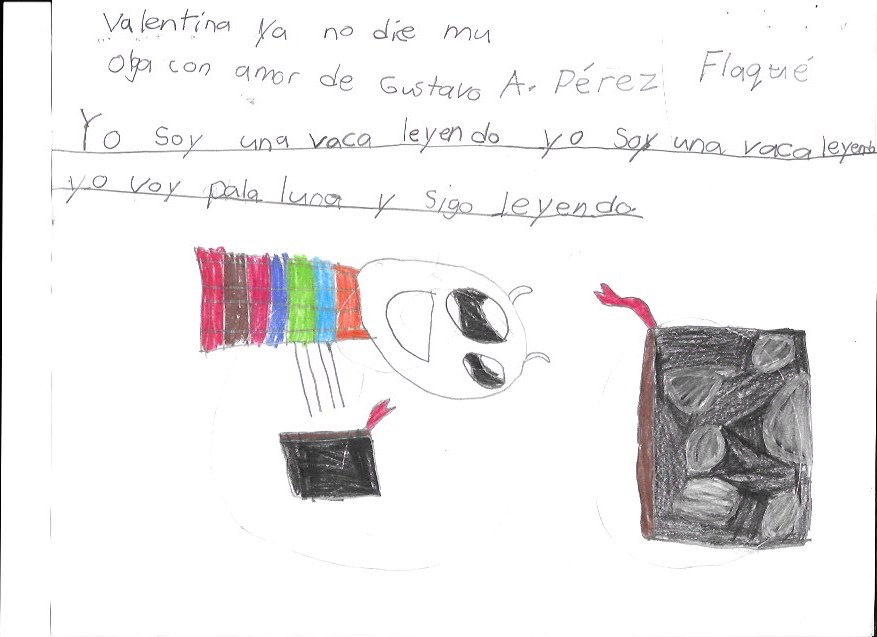 Valentina ya no die mu
oba con amor de Gustavo A. Pérez Flaqué
Yo soy una vaca leyendo yo soy una vaca leyendo
yo voy pala luna y sigo leyendo